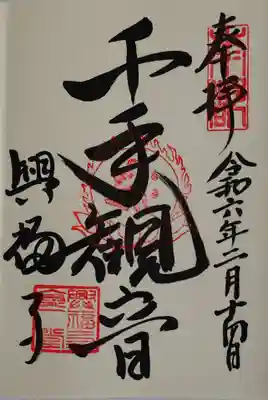 奉拝
令和六年二月十四日
千手観音
興福寺